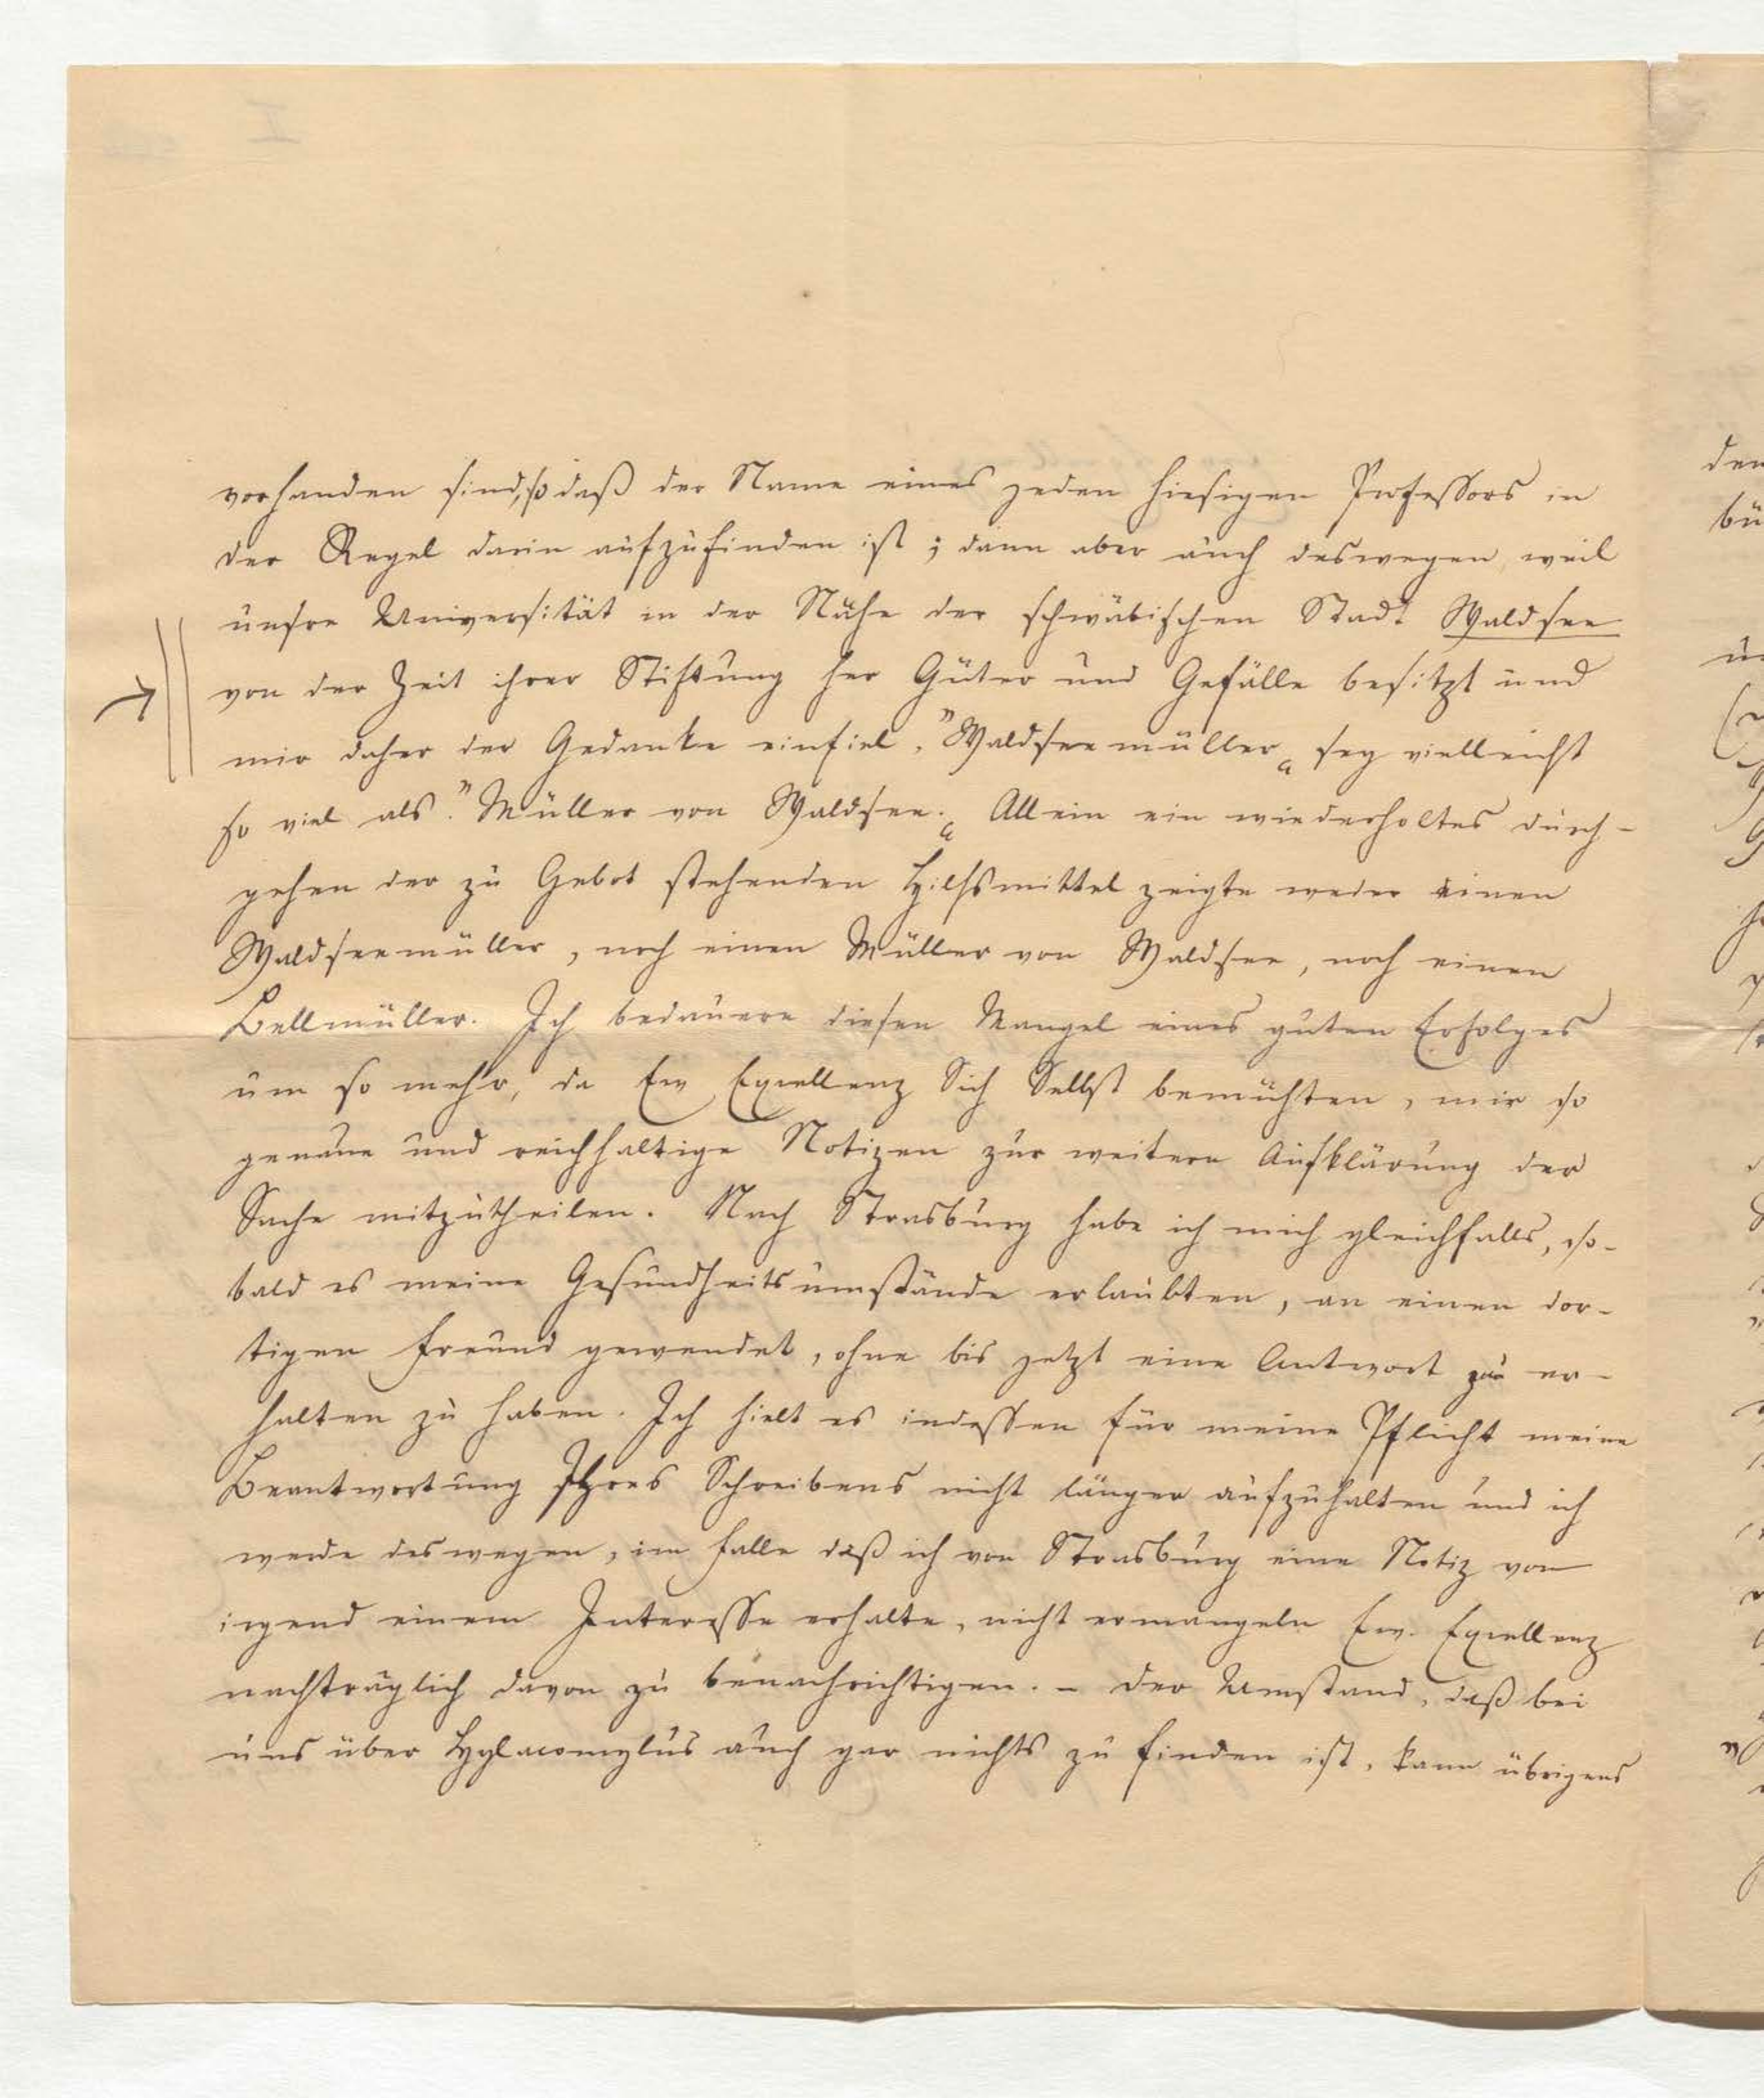 vorhanden sind, so daß der Name eines jeden hiesigen Professors in
der Regel darin aufzufinden ist; dann aber auch deswegen, weil
unsre Universität in der Nähe der schwäbischen Stadt Waldsee
von der Zeit ihrer Stiftung her Güter und Gefälle besitzt und
mir daher der Gedanke einfiel, "Waldseemüller" sey vielleicht
so viel als: "Müller von Waldsee." Allein ein wiederholtes Durch-
gehen der zu Gebot stehenden Hilfsmittel zeigte weder einen
Waldseemüller, noch einen Müller von Waldsee, noch einen
Bellmüller. Ich bedauere diesen Mangel eines guten Erfolges
um so mehr, da Ew Excellenz Sich Selbst bemühten, mir so
genaue und reichhaltige Notizen zur weitern Aufklärung der
Sache mitzutheilen. Nach Strasburg habe ich mich gleichfalls, so-
bald es meine Gesundheitsumstände erlaubten, an einen dor-
tigen Freund gewendet, ohne bis jetzt eine Antwort zu er-
halten zu haben. Ich hielt es indessen für meine Pflicht meine
Beantwortung Ihres Schreibens nicht länger aufzuhalten und ich
werde deswegen, im Falle daß ich von Strasburg eine Notiz von
irgend einem Interesse erhalte, nicht ermangeln Ew. Excellenz
nachträglich davon zu benachrichtigen. – Der Umstand, daß bei
uns über Hylacomylus auch gar nichts zu finden ist, kann übrigens
den
bü